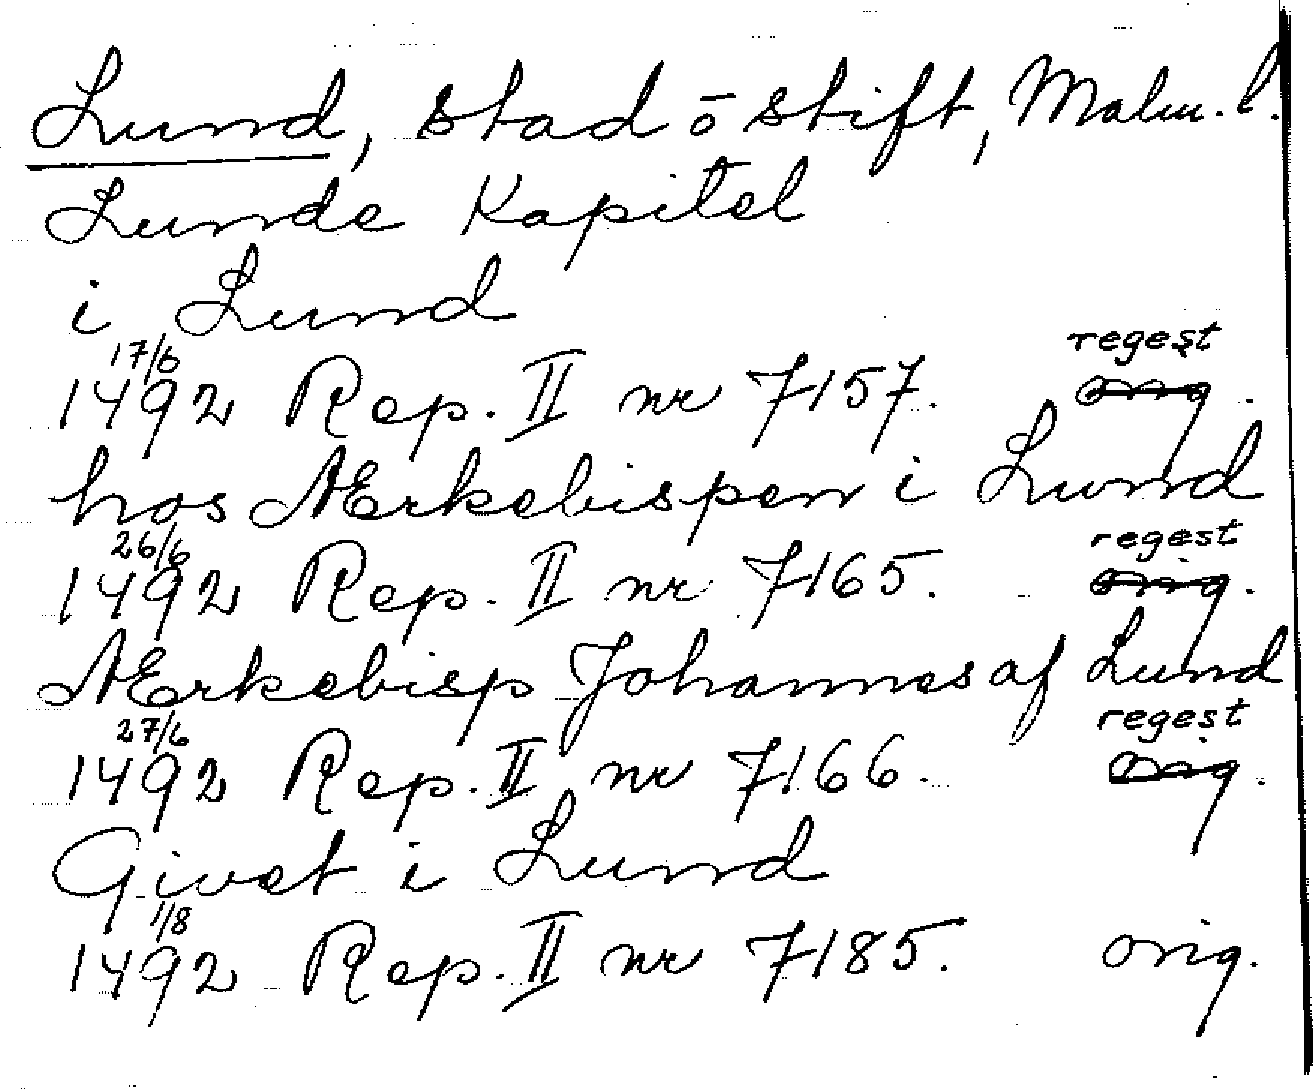 Lund, stad ō stift, Malm. l.
Lunde Kapitel
i Lund
17/6 regest
1492 Rep. II nr 7157. orig.
hos Ærkebispen i Lund
26/6 regest
1492 Rep. II nr 7165. orig.
Ærkebisp Johannes af Lund
27/6 regest
1492 Rep. II nr 7166. orig.
Givet i Lund
1/8
1492 Rep. II nr 7185. orig.